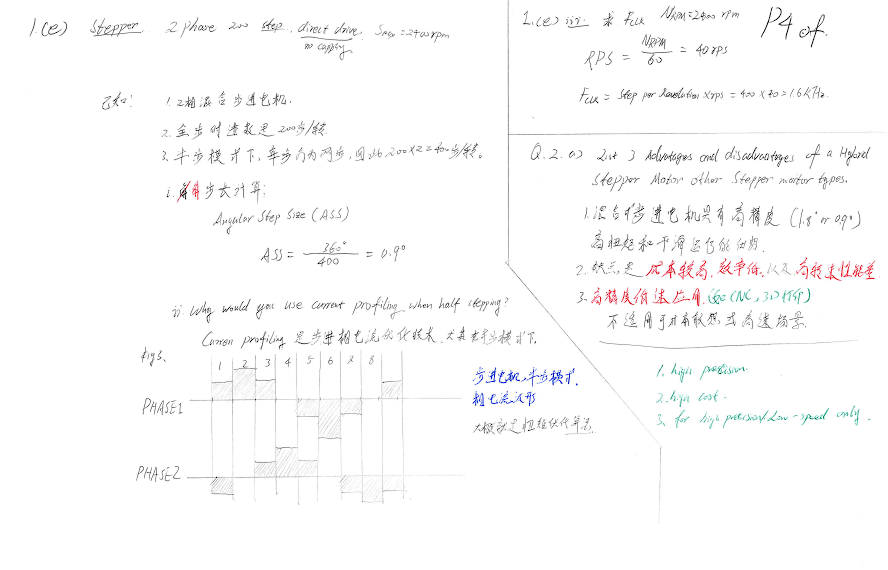 1.(e) Stepper 2 phase 200 step, direct drive,
已知: 1. 2相混合步进电机.
2. 全步时 步数是 200步/转
3. 半步模式下, 每步分为两步, 因此 200×2=400步/转。
i. 步长计算:
Angular Step Size (ASS)
ASS = 360°/400 = 0.9°
ii. Why would you use current profiling when half stepping?
Curren profiling 是步进相电流优化技术. 尤其半步模式下.
Fig3.
1 2 3 4 5 6 7 8
PHASE1
PHASE2
步进电机, 半步模式.
相电流波形
1.(e) iii. 求 Fclk NRPM=2400 rpm
P4 of.
RPS = NRPM/60 = 40rps
Fclk = Step per Revolution × rps = 400 × 40 = 1.6KHz.
Q.2.a) List 3 Advantages and disadvantages of a Hybrid
Stepper Motor other Stepper mortor types.
1. 混合式步进电机具有高精度 (1.8° or 0.9°)
高扭矩和平滑运行的优势.
2. 缺点是 成本较高, 效率低, 以及 高转速性能差
3. 高精度低速应用, (CNC, 3D打印)
不适用于 高速场景
1. high precision.
2. high cost.
3. for high precision low-speed only.